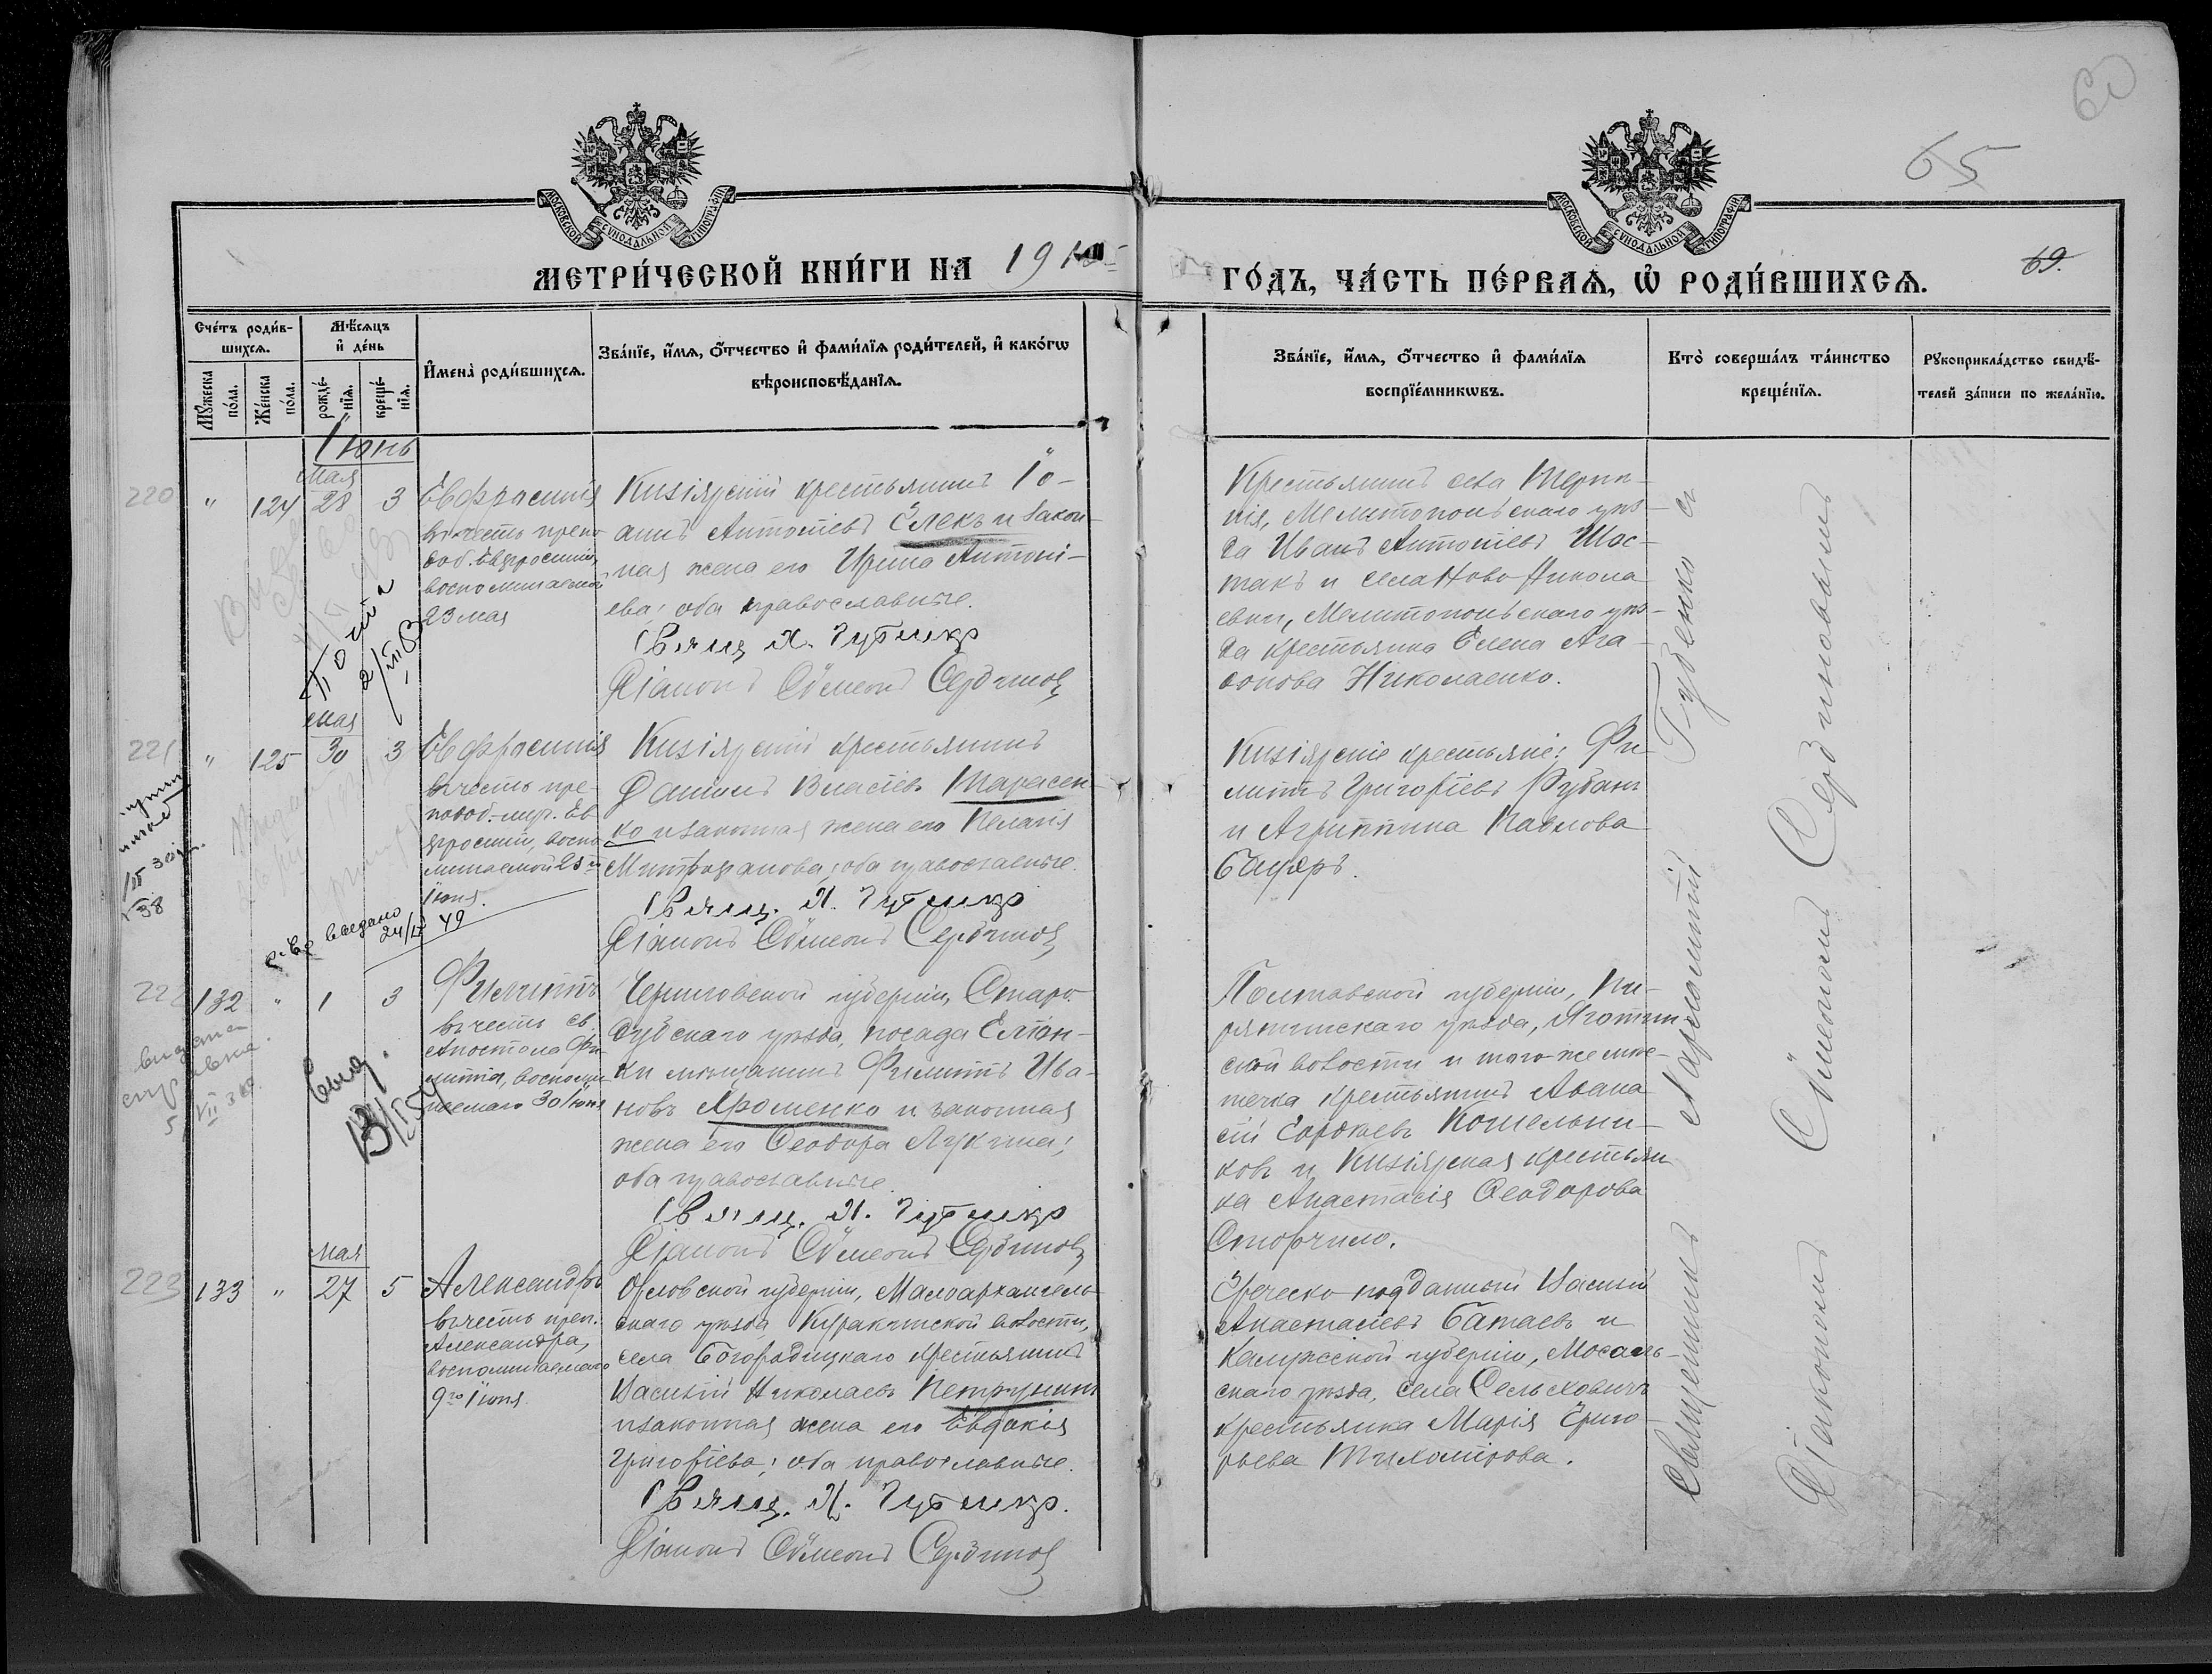 60
65
69.
МОСКОВСКОЙ СѴНОДАЛЬНОЙ ТИПОГРАФІИ
МОСКОВСКОЙ СѴНОДАЛЬНОЙ ТИПОГРАФІИ
МЕТРИ́ЧЕСКОЙ КНИ́ГИ НА 191
ГО́ДЪ, ЧА́СТЬ ПЕ́РВАѦ, Ѿ РОДИ́ВШИХСѦ.
Сче́тъ роди́в-
шихсѧ.
Мѣ́сѧцъ
и҆ де́нь
Мꙋ́жеска по́ла.
Же́нска по́ла.
рожде́-
нїѧ.
креще́-
нїѧ.
И҆мена̀ роди́вшихсѧ.
Зва́нїе, и҆́мѧ, ѻ҆́тчество и҆ фами́лїѧ роди́телей, и҆ како́гѡ
вѣроисповѣ́данїѧ.
Зва́нїе, и҆́мѧ, ѻ҆́тчество и҆ фами́лїѧ
воспрїе́мникѡвъ.
Кто̀ соверша́лъ та́инство
креще́нїѧ.
Рꙋкоприкла́дство свидѣ́-
телей за́писи по жела́нїю.
Іюнь
220
" 124
Мая
28 3
Евфросинія
въ честь препо
доб. Евфросиніи,
воспоминаемой
23 мая
Кизіярскій крестьянинъ Іо-
аннъ Антоніевъ Слекъ и закон-
ная жена его Ирина Антоні-
ева; оба православные.
Свящ. Х. Губенко
Діаконъ Сѵмеонъ Сердиновъ
Крестьянинъ села Терпе-
нія, Мелитопольскаго уѣз-
да Иванъ Антоніевъ Шос-
такъ и села Ново Никола
евки, Мелитопольскаго уѣз-
да крестьянка Елена Ага-
фонова Николаенко.
221
" 125
мая
30 3
Евфросинія
въ честь пре-
подоб.-муч. Ев
фросиніи, воспо
минаемой 25 го
Іюня.
Кизіярскій крестьянинъ
Даніилъ Власіевъ Тарасен-
ко и законная жена его Пелагія
Митрофанова; оба православные.
Свящ. Х. Губенко
Діаконъ Сѵмеонъ Сердиновъ
Кизіярскіе крестьяне: Фи-
липпъ Григоріевъ Рубанъ
и Агриппина Павлова
222
132 " 1 3
Филиппъ
въ честь св.
Апостола Фи-
липпа, воспоми
наемаго 30 Іюня
Черниговской губерніи, Старо-
дубскаго уѣзда, посада Еліон-
ки мѣщанинъ Филиппъ Ива-
новъ Ярошенко и законная
жена его Феодора Лукина;
оба православные.
Свящ. Х. Губенко
Діаконъ Сѵмеонъ Сердиновъ
Полтавской губерніи, Пи-
рятинскаго уѣзда, Яготин-
ской волости и того-же мѣс-
течка крестьянинъ Афана
сій Сергіевъ Кошельни-
ковъ и Кизіярская крестьян
ка Анастасія Феодорова
223
133 "
мая
27 5
Александръ
въ честь преп.
Александра,
воспоминаемаго
9 го Іюня
Орловской губерніи, Малоархангель-
скаго уѣзда, Куракинской волости,
села Богородицкаго крестьянинъ
Василій Николаевъ Петрушинъ
и законная жена его Евдокія
Григоріева; оба православные.
Свящ. Х. Губенко.
Діаконъ Сѵмеонъ Сердиновъ
Греческо-подданный Василій
Анастасіевъ Батаевъ и
Калужской губерніи, Мосаль-
скаго уѣзда, села Сельсковичъ
крестьянка Марія Григо-
рьева Тихомірова.
Священникъ Харлампій Губенко съ
Діакономъ Сѵмеономъ Сердиновымъ